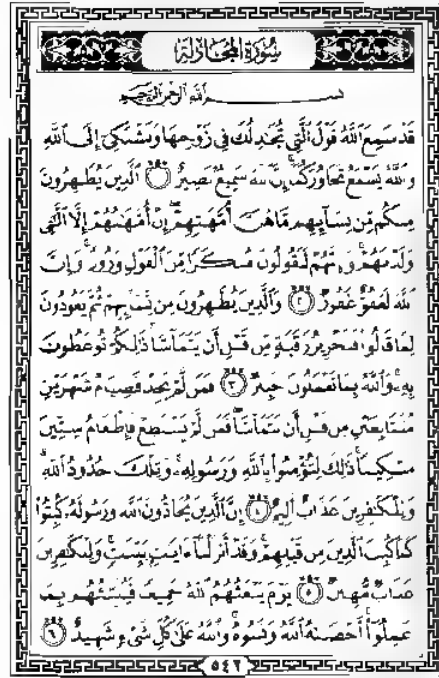 سُورَةُ المُجَادلة
بِسْمِ ٱللَّهِ ٱلرَّحْمَٰنِ ٱلرَّحِيمِ
قَدْ سَمِعَ ٱللَّهُ قَوْلَ ٱلَّتِى تُجَٰدِلُكَ فِى زَوْجِهَا وَتَشْتَكِىٓ إِلَى ٱللَّهِ
وَٱللَّهُ يَسْمَعُ تَحَاوُرَكُمَآ إِنَّ ٱللَّهَ سَمِيعٌۢ بَصِيرٌ ١ ٱلَّذِينَ يُظَٰهِرُونَ
مِنكُم مِّن نِّسَآئِهِم مَّا هُنَّ أُمَّهَٰتِهِمْ إِنْ أُمَّهَٰتُهُمْ إِلَّا ٱلَّٰٓـِٔى
وَلَدْنَهُمْ وَإِنَّهُمْ لَيَقُولُونَ مُنكَرًا مِّنَ ٱلْقَوْلِ وَزُورًا وَإِنَّ
ٱللَّهَ لَعَفُوٌّ غَفُورٌ ٢ وَٱلَّذِينَ يُظَٰهِرُونَ مِن نِّسَآئِهِمْ ثُمَّ يَعُودُونَ
لِمَا قَالُوا۟ فَتَحْرِيرُ رَقَبَةٍ مِّن قَبْلِ أَن يَتَمَآسَّا ذَٰلِكُمْ تُوعَظُونَ
بِهِۦ وَٱللَّهُ بِمَا تَعْمَلُونَ خَبِيرٌ ٣ فَمَن لَّمْ يَجِدْ فَصِيَامُ شَهْرَيْنِ
مُتَتَابِعَيْنِ مِن قَبْلِ أَن يَتَمَآسَّا فَمَن لَّمْ يَسْتَطِعْ فَإِطْعَامُ سِتِّينَ
مِسْكِينًا ذَٰلِكَ لِتُؤْمِنُوا۟ بِٱللَّهِ وَرَسُولِهِۦ وَتِلْكَ حُدُودُ ٱللَّهِ
وَلِلْكَٰفِرِينَ عَذَابٌ أَلِيمٌ ٤ إِنَّ ٱلَّذِينَ يُحَآدُّونَ ٱللَّهَ وَرَسُولَهُۥ كُبِتُوا۟
كَمَا كُبِتَ ٱلَّذِينَ مِن قَبْلِهِمْ وَقَدْ أَنزَلْنَآ ءَايَٰتٍۭ بَيِّنَٰتٍ وَلِلْكَٰفِرِينَ
عَذَابٌ مُّهِينٌ ٥ يَوْمَ يَبْعَثُهُمُ ٱللَّهُ جَمِيعًا فَيُنَبِّئُهُم بِمَا
عَمِلُوٓا۟ أَحْصَىٰهُ ٱللَّهُ وَنَسُوهُ وَٱللَّهُ عَلَىٰ كُلِّ شَىْءٍ شَهِيدٌ ٦
٥٤٢